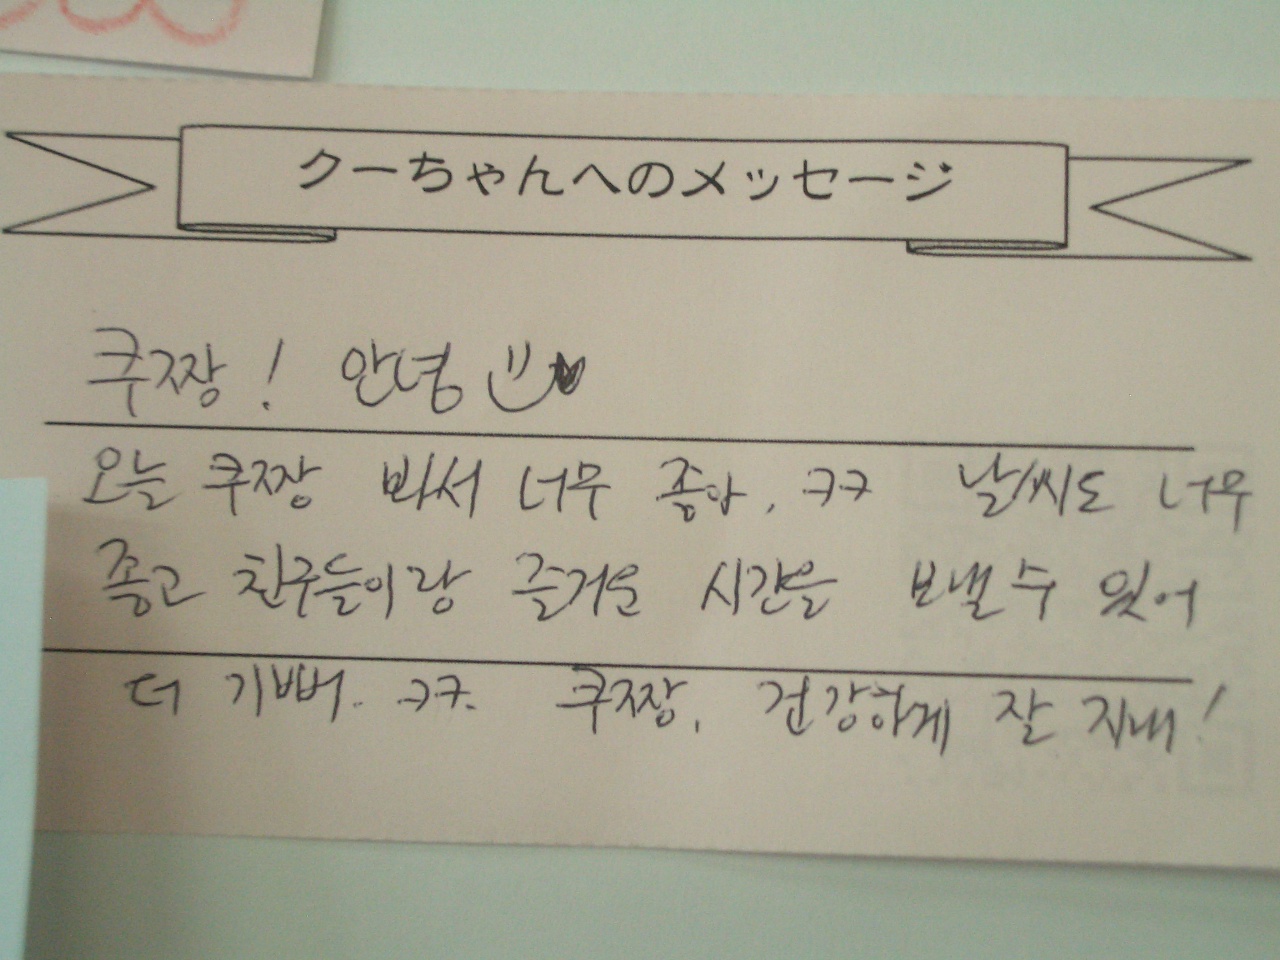 クーちゃんへのメッセージ
쿠짱! 안녕
오늘 쿠짱 봐서 너무 좋아. ㅋㅋ 날씨도 너무
좋고 친구들이랑 즐거운 시간을 보낼 수 있어
더 기뻐. ㅋㅋ. 쿠짱, 건강하게 잘 지내!